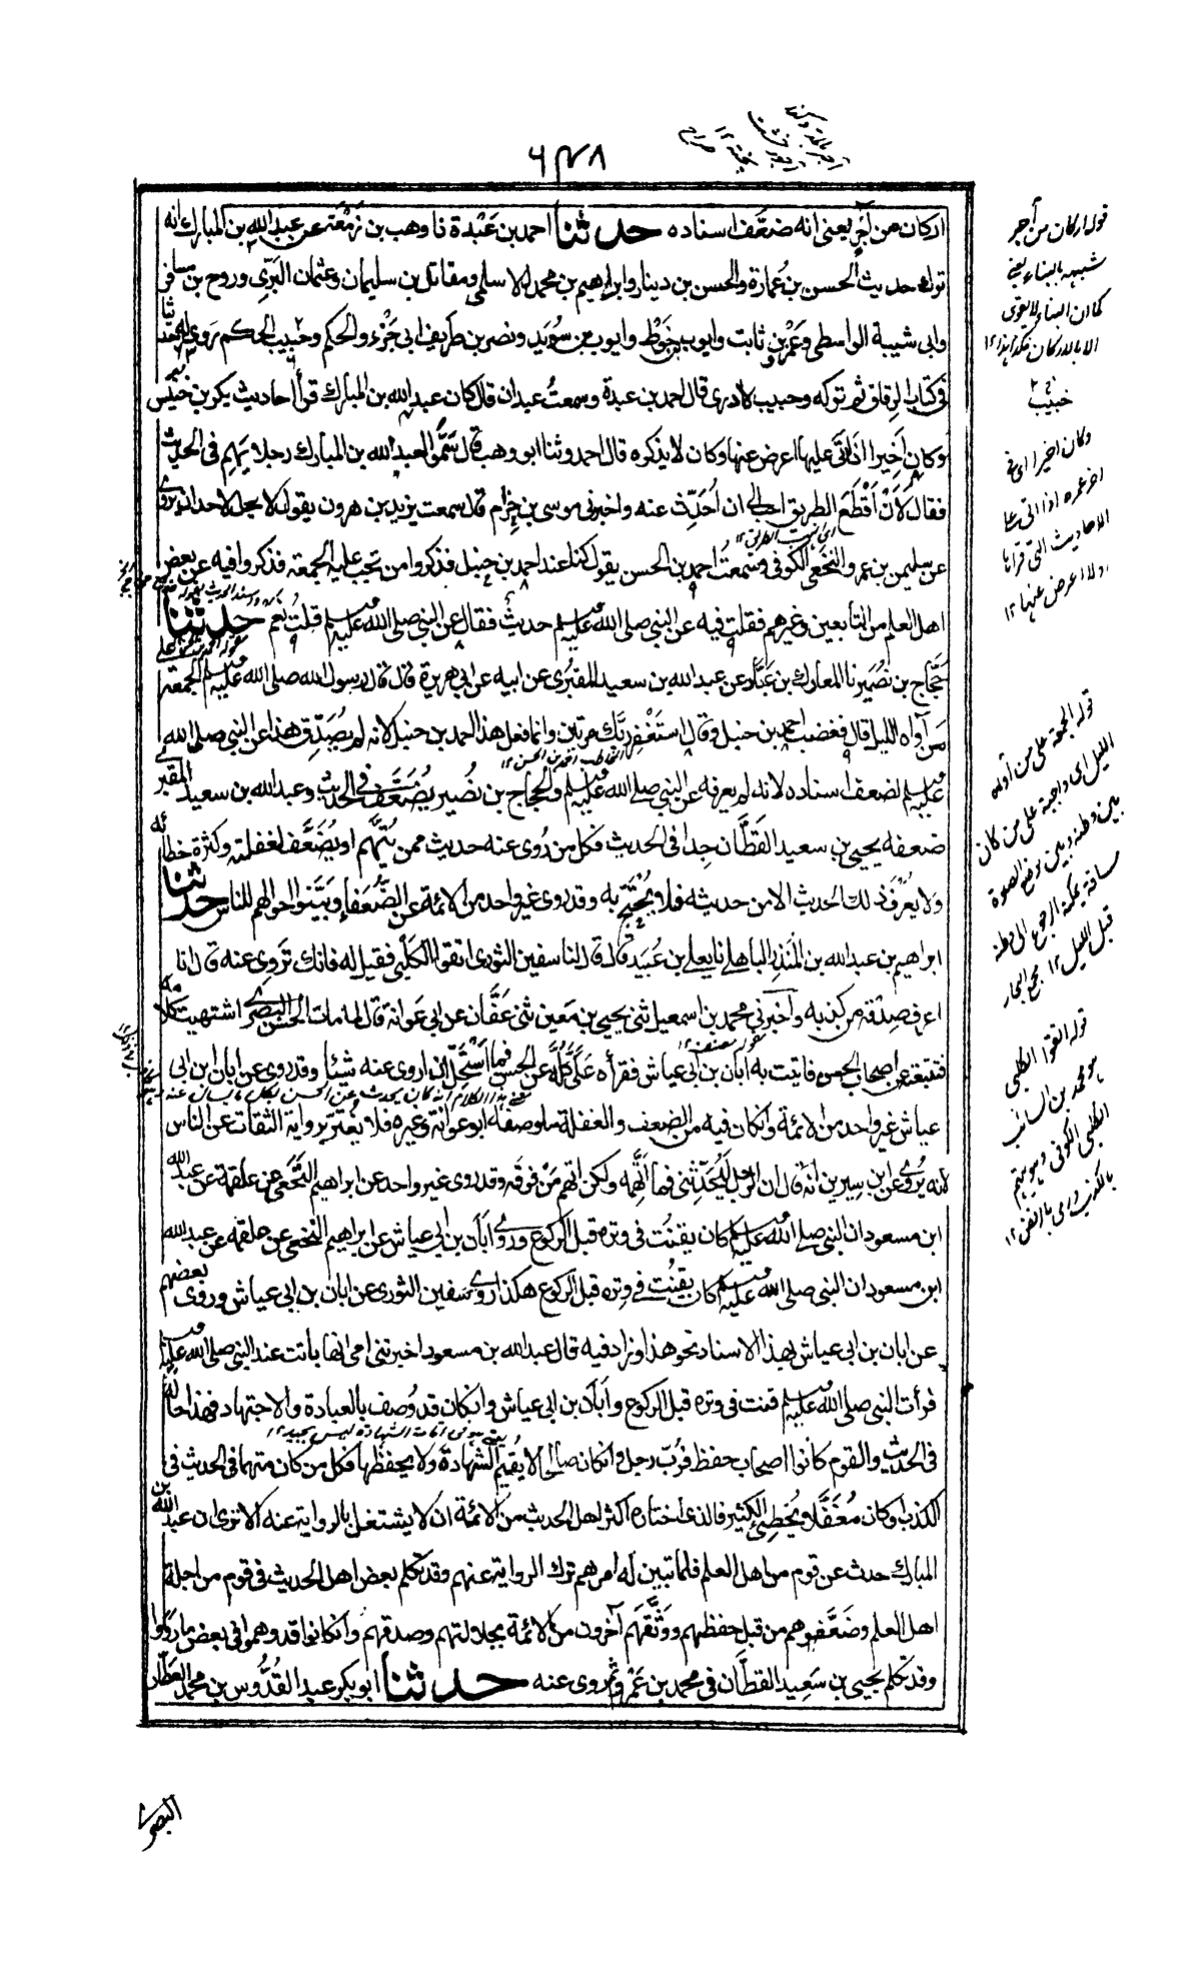 ٦٣٨
اركان من آجر يعنى انه ضعّف اسناده حدثنا احمد بن عَبْدة نا وهب بن زمْعَة عن عبد الله بن المبارك انه
ترك حديث الحسن بن عُمارة والحسن بن دينار وابراهيم بن محمد الاسلمى ومقاتل بن سليمان وعثمان البَرّى وروح بن مسافر
وابى شيبة الواسطى وعَمْرو بن ثابت وايوب بن خَوْط وايوب بن سُوَيد ونصر بن طريف ابى جَزْء والحكم وحَبيب الحكم روى له حديثا
فى كتاب الرقاق ثم تركه وحبيب لا ادرى قال احمد بن عبدة وسمعتُ عبدان قال كان عبد الله بن المبارك قرأ احاديث بكر بن خنيس
وكان اَخيرا اذا اتى عليها اعرض عنها وكان لا يذكره قال احمد وثنا ابو وهب قال سَمَّوْا لعبد الله بن المبارك رجلا يتهم فى الحديث
فقال لَاَنْ اَقْطَعَ الطريق احب الى ان اُحَدِّث عنه واخبرنى موسى بن حِزام قال سمعت يزيد بن هرون يقول لا يحل لاحد ان يروى
عن سليمن بن عمرو النخعى الكوفى وسمعتُ احمد بن الحسن يقول كنا عند احمد بن حنبل فذكروا من تجب عليه الجمعة فذكروا فيه عن بعض
اهل العلم من التابعين وغيرهم فقلت فيه عن النبى صلى الله عليه وسلم حديث فقال عن النبى صلى الله عليه وسلم قلت نعم حدثنا
حَجّاج بن نُصَير نا المعارك بن عَبّاد عن عبد الله بن سعيد المقبُرى عن ابيه عن ابى هريرة قال قال رسول الله صلى الله عليه وسلم الجمعة على
من آواه الليل قال فغضب احمد بن حنبل وقال استَغْفِر ربَّك مرتين وانما فعل هذا احمد بن حنبل لانه لم يُصَدِّق هذا عن النبى صلى الله
عليه وسلم لضعف اسناده لانه لم يعرفه عن النبى صلى الله عليه وسلم والحجاج بن نُصير يُضعَّف فى الحديث وعبد الله بن سعيد المقبرى
ضعفه يحيى بن سعيد القَطَّان جدا فى الحديث فكل من رُوى عنه حديث ممن يُتَّهم او يُضَعَّف لغفلته وكثرة خطائه
ولا يُعْرَف ذلك الحديث الا من حديثه فلا يُحْتَج به وقد روى غير واحد من الائمة عن الضُّعَفاء وبَيَّنوا احوالهم للناس حدثنا
ابراهيم بن عبد الله بن المنذر الباهلى نا يعلى بن عُبَيد قال قال لنا سفين الثورى اتقوا الكَلْبى فقيل له فانك تَروى عنه قال انا
اعرف صِدْقه من كذبه واَخبرنى محمد بن اسمعيل ثنى يحيى بن مَعين ثنى عَفَّان عن ابى عَوانة قال لما مات الحسن البصرى اشتهيتُ كلامه
فتتبعته عن اصحاب الحسن فاتيت به اَبان بن ابى عياش فقرأه عَلَىَّ كُلَّه عن الحسن فما اَسْتَحِلّ ان اروى عنه شيئا وقد روى عن ابان بن ابى
عياش غير واحد من الائمة وان كان فيه من الضعف والغفلة ما وصفه ابو عوانة وغيره فلا يغتر برواية الثقات عن الناس
لانه يُرْوى عن ابن سيرين انه قال ان الرجل لَيُحَدِّثنى فما اَتَّهمه ولكن اتهم مَنْ فوقه وقد روى غير واحد عن ابراهيم النَّخَعى عن علقمة عن عبد الله
ابن مسعود ان النبى صلى الله عليه وسلم كان يقنُت فى وتره قبل الركوع وروى اَبَان بن ابى عياش عن ابراهيم النخعى عن علقمة عن عبد الله
ابن مسعود ان النبى صلى الله عليه وسلم كان يقنُت فى وتره قبل الركوع هكذا روى سفين الثورى عن ابان بن ابى عياش وروى بعضهم
عن ابان بن ابى عياش بهذا الاسناد نحو هذا وزاد فيه قال عبد الله بن مسعود اخبرتنى امى انها باتت عند النبى صلى الله عليه وسلم
فرأت النبى صلى الله عليه وسلم قنت فى وتره قبل الركوع واَبَان بن ابى عياش وان كان قد وُصف بالعبادة والاجتهاد فهذا حاله
فى الحديث والقوم كانوا اصحاب حفظ فرُبّ رجل وان كان صالحا لا يُقيم الشهادة ولا يحفظها فكل من كان متهما فى الحديث فى
الكذب او كان مُغَفَّلا يُخطِئ الكثير فالذى اختاره اكثر اهل الحديث من الائمة ان لا يشتغل بالرواية عنه الا ترى ان عبد الله بن
المبارك حدث عن قوم من اهل العلم فلما تبين له امرهم ترك الرواية عنهم وقد تكلم بعض اهل الحديث فى قوم من اجلة
اهل العلم وضَعَّفوهم من قبل حفظهم ووَثَّقَهم آخرون من الائمة بجلالتهم وصدقهم وان كانوا قد وهموا فى بعض ما رووا
وقد تكلم يحيى بن سَعِيد القطَّان فى محمد بن عَمْرو ثم روى عنه حدثنا ابو بكر عبد القُدُّوس بن محمد العَطّار
البصرى
قوله اركان من آجر
شبهه بالبناء يعنى
كما ان البناء لا يقوى
الا بالاركان هكذا هذا ١٢
خبيب
وكان اخيرا اى فى
آخر عمره اذا اتى على
الاحاديث التى قرأها
اولا اعرض عنها ١٢
قوله الجمعة على من آواه
الليل اى واجبة على من كان
بين وطنه وبين موضع الصلوة
مسافة يمكنه الرجوع الى وطنه
قبل الليل ١٢ مجمع البحار
قوله اتقوا الكلبى
هو محمد بن السائب
الكلبى الكوفى وهو متهم
بالكذب ورمى بالرفض ١٢